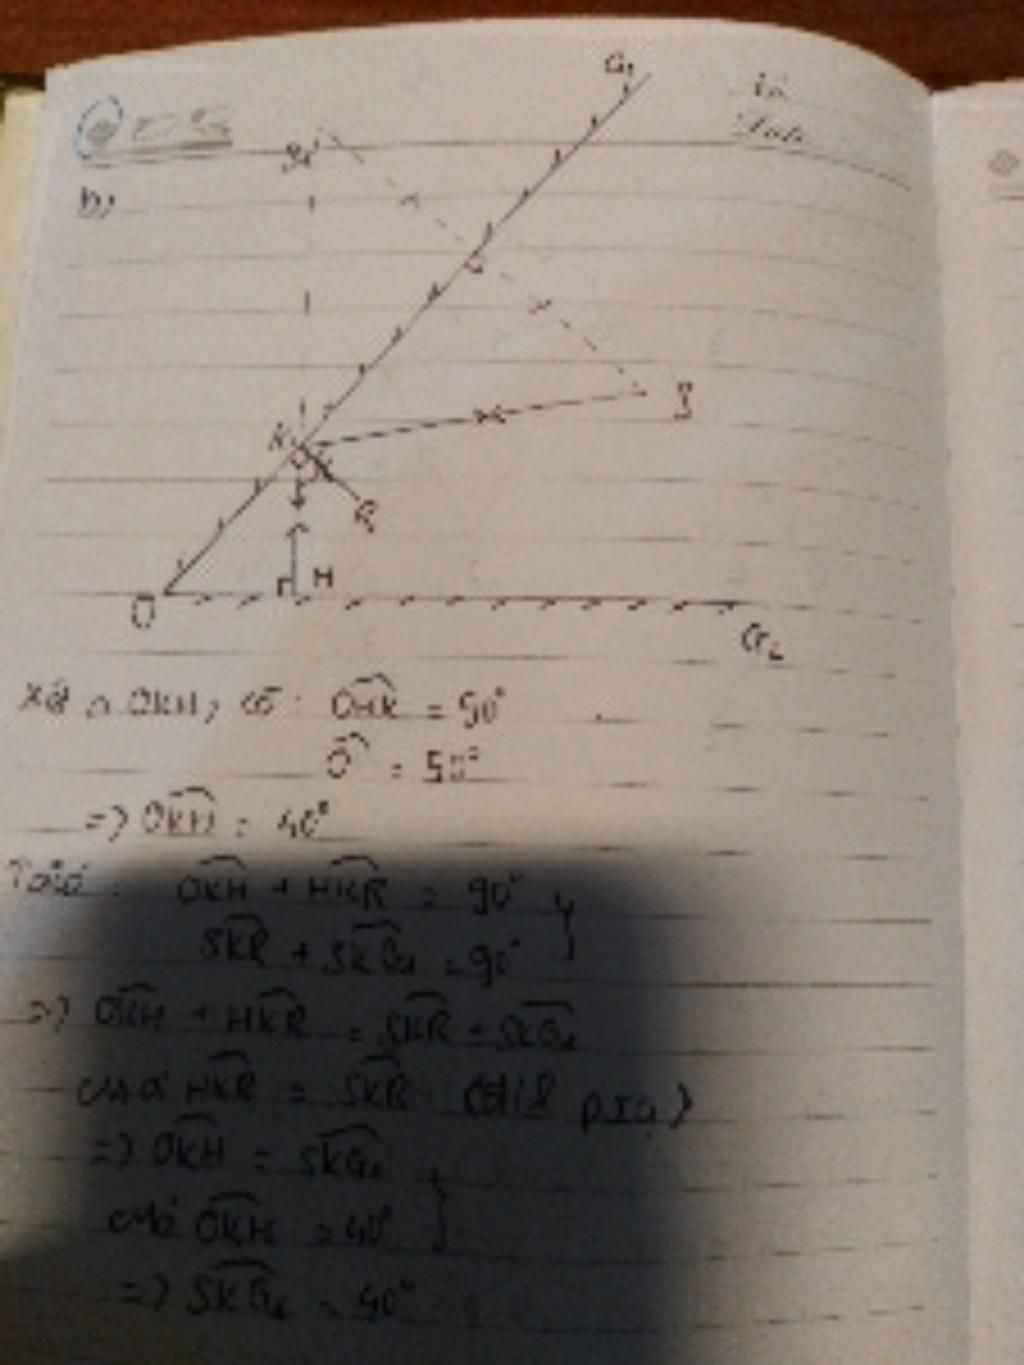 G₁
S'
b)
S
K
R
H
O
G₂
Xét △ OKH, có: \widehat{OHK} = 90°
\widehat{O} = 50°
=> \widehat{OKH} = 40°
\widehat{OKH} + \widehat{HKR} = 90°
\widehat{SKR} + \widehat{SKG₁} = 90°
=> \widehat{OKH} + \widehat{HKR} = \widehat{SKR} + \widehat{SKG₁}
Mà \widehat{HKR} = \widehat{SKR} (đl pxa)
=> \widehat{OKH} = \widehat{SKG₁}
Mà \widehat{OKH} = 40°
=> \widehat{SKG₁} = 40°